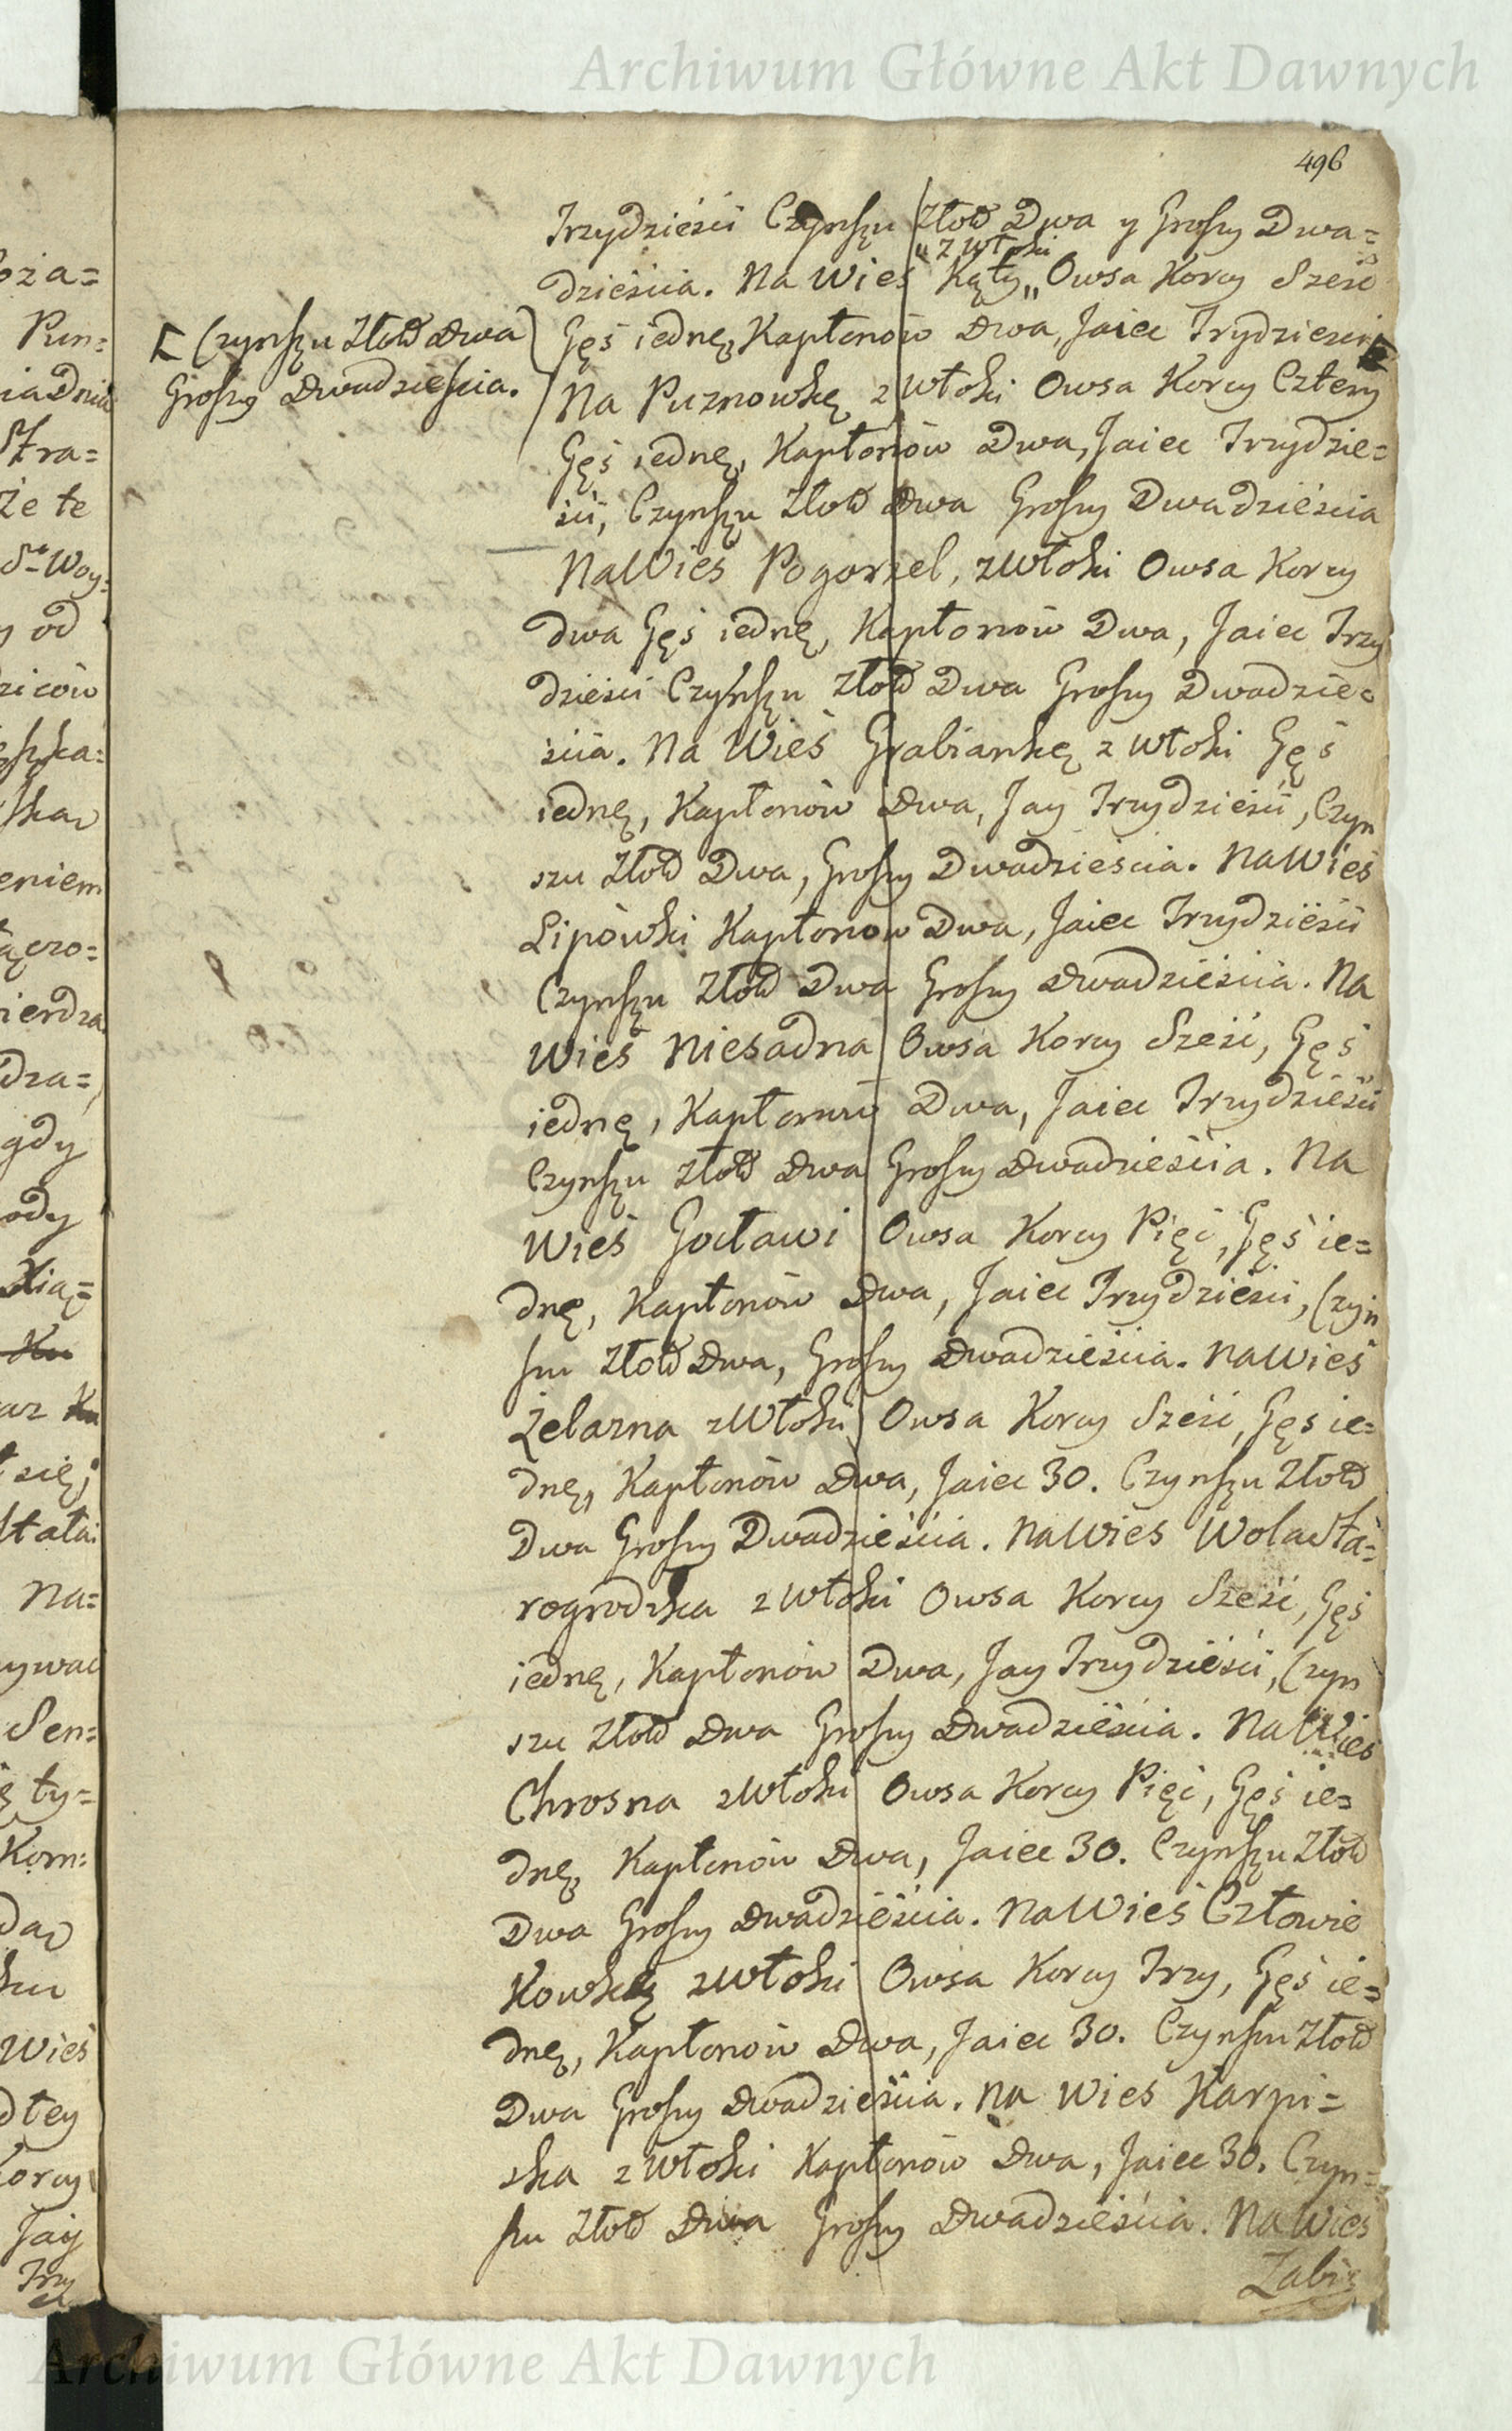 Archiwum Główne Akt Dawnych
496
Trzydzieści Czynszu Złoť Dwa y Groszy Dwa=
" z włoki
dzieścia. Na Wieś Kąty„ Owsa Korcy Sześć
Gęś iednę, Kapłonów Dwa, Jaiec Trydzieści
Czynszu Złoť Dwa
Groszy Dwadzieścia.
Na Puznowkę z Włoki Owsa Korcy Cztery
Gęś iednę, Kapłonów Dwa, Jaiec Trzydzie=
ści, Czynszu Złoť Dwa Groszy Dwadzieścia
Na Wieś Pogorzel, z Włoki Owsa Korcy
dwa Gęś iednę, Kapłonów Dwa, Jaiec Trzy
dzieści Czynszu Złoť Dwa Groszy Dwadzie=
ścia. Na Wieś Grabiankę z Włoki Gęś
iednę, Kapłonów Dwa, Jay Trzydzieści, Czyn
szu Złoť Dwa, Groszy Dwadzieścia. Na Wieś
Lipówki Kapłonow Dwa, Jaiec Trzydzieści
Czynszu Złoť Dwa Groszy Dwadzieścia. Na
Wieś Niesadna Owsa Korcy Sześć, Gęś
iednę, Kapłonów Dwa, Jaiec Trzydzieści
Czynszu Złoť Dwa Groszy Dwadzieścia. Na
Wieś Gocławi Owsa Korcy Pięć, Gęś ie=
dnę, Kapłonów Dwa, Jaiec Trzydzieści, Czyn
szu Złoť Dwa, Groszy Dwadzieścia. Na Wieś
Żelazna z Włoki Owsa Korcy Sześć, Gęś ie=
dnę, Kapłonów Dwa, Jaiec 30. Czynszu Złoť
Dwa Groszy Dwadzieścia. Na Wieś Wola Sta=
rogrodzka z Włoki Owsa Korcy Sześć, Gęś
iednę, Kapłonów Dwa, Jay Trzydzieści, Czyn
szu Złoť Dwa Groszy Dwadzieścia. Na Wieś
Chrosna z Włoki Owsa Korcy Pięć, Gęś ie=
dnę, Kapłonów Dwa, Jaiec 30. Czynszu Złoť
Dwa Groszy Dwadzieścia. Na Wieś Człowie
Kowkę z Włoki Owsa Korcy Trzy, Gęś ie=
dnę, Kapłonów Dwa, Jaiec 30. Czynszu Złoť
Dwa Groszy Dwadzieścia. Na Wieś Karpi=
ska z Włoki Kapłonów Dwa, Jaiec 30. Czyn=
szu Złoť Dwa Groszy Dwadzieścia. Na Wieś
Żabi=
Archiwum Główne Akt Dawnych